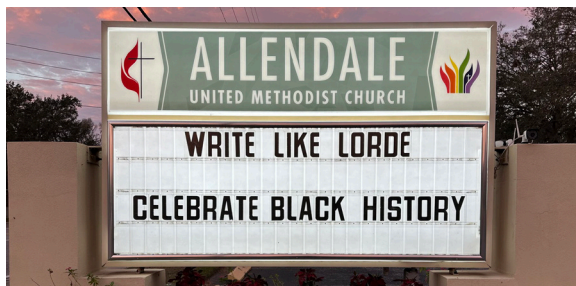 ALLENDALE
UNITED METHODIST CHURCH
WRITE LIKE LORDE
CELEBRATE BLACK HISTORY